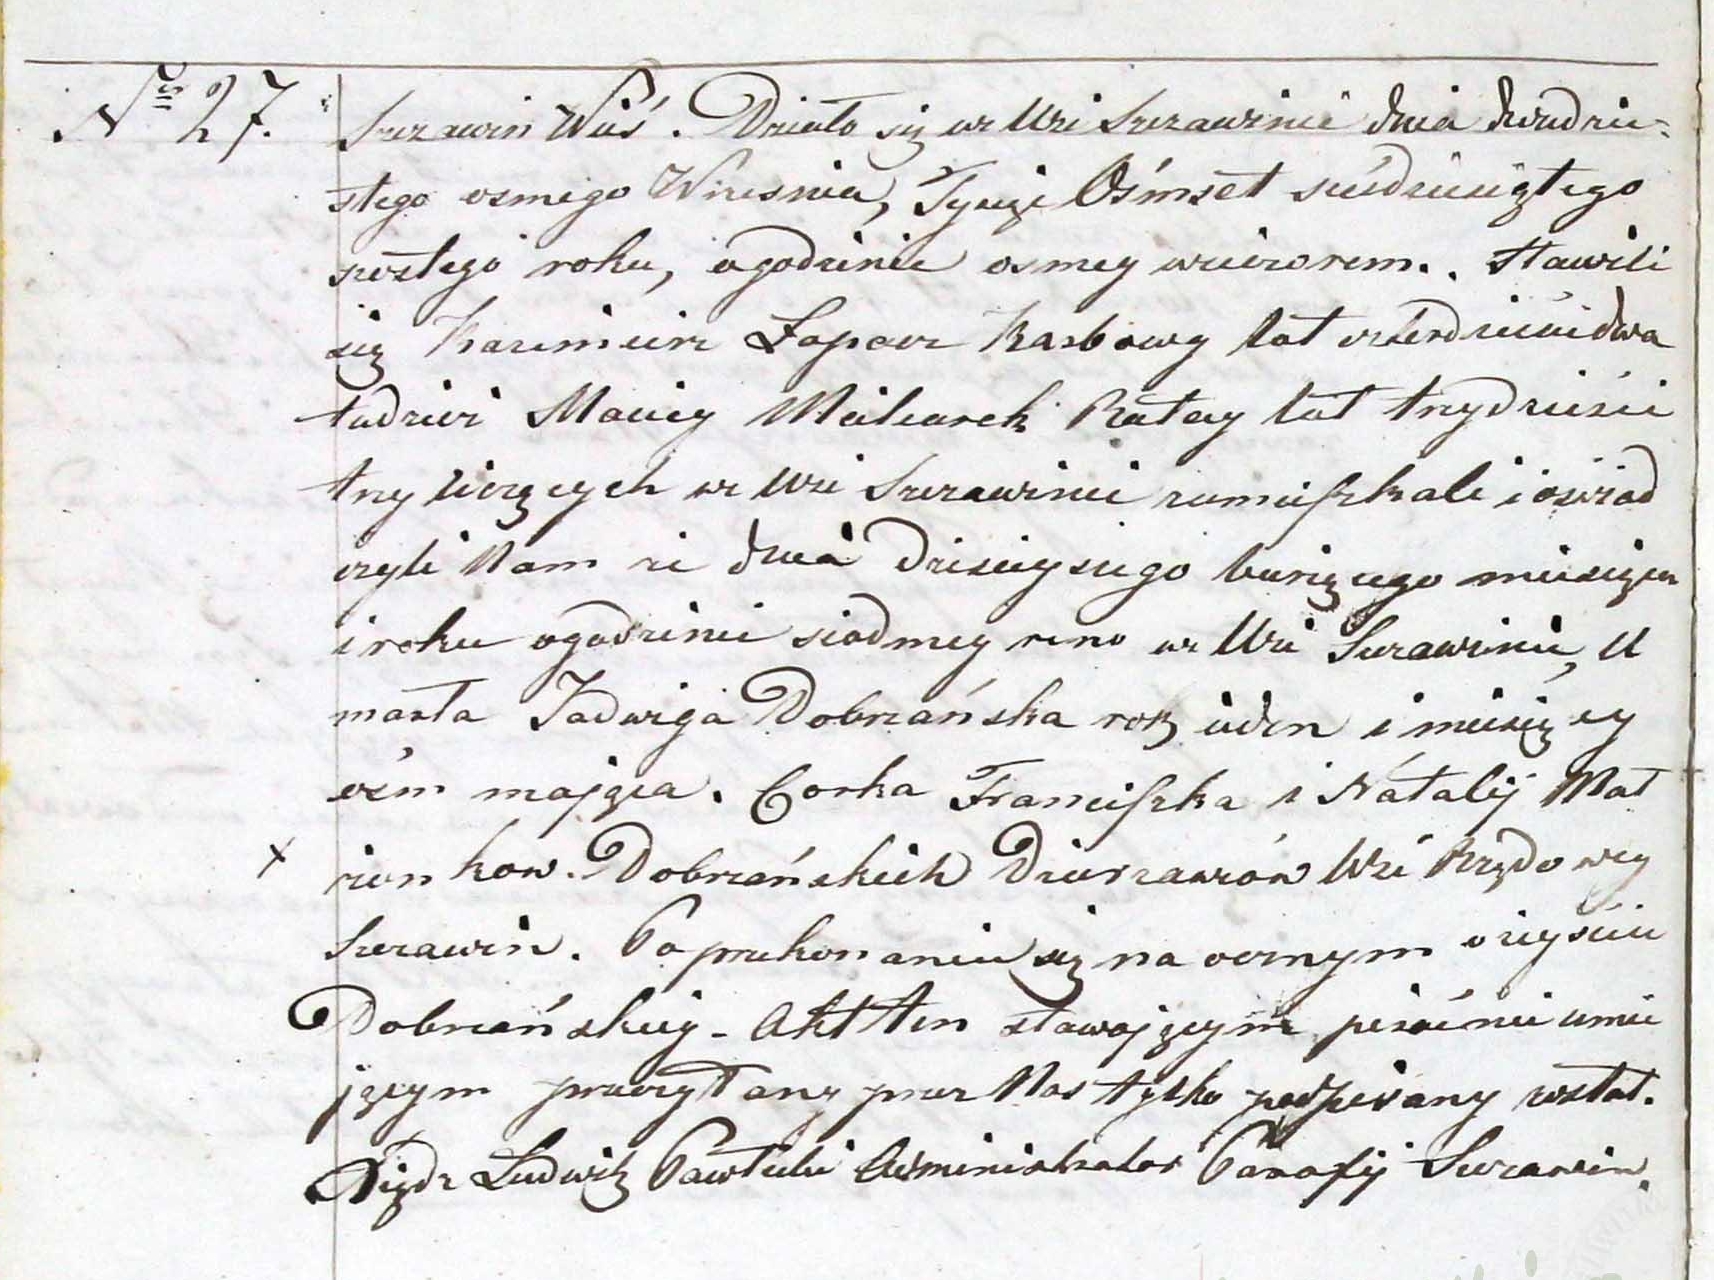 No 27.
Szczawin Wieś. Działo się we Wsi Szczawinie dnia dwudzie-
stego osmego Wrzesnia, Tysiąc Ośmset sześdziesiątego
szostego roku, o godzinie osmey wieczorem. Stawili
się Kazimierz Łapacz Karbowy lat czterdzieści dwa
tudzież Maciey Walczarek Ratay lat trzydzieści
trzy liczących we Wsi Szczawinie zamieszkali i oświad
czyli Nam że dnia dzisieyszego bieżącego miesiąca
i roku o godzinie siodmey rano we Wsi Szczawinie, U
marła Jadwiga Dobrzańska rok jeden i miesięcy
ośm mająca. Corka Franciszka i Natalij Mał
żonkow Dobrzańskich Dzierzawców Wsi Rządowey
Szczawin. Po przekonaniu się na ocznym o zeyściu
Dobrzańskiey - Akt ten stawającym pisać nie umie
jącym przeczytany przez Nas tylko podpisany został.
Xiądz Ludwik Administrator Parafij Szczawin.